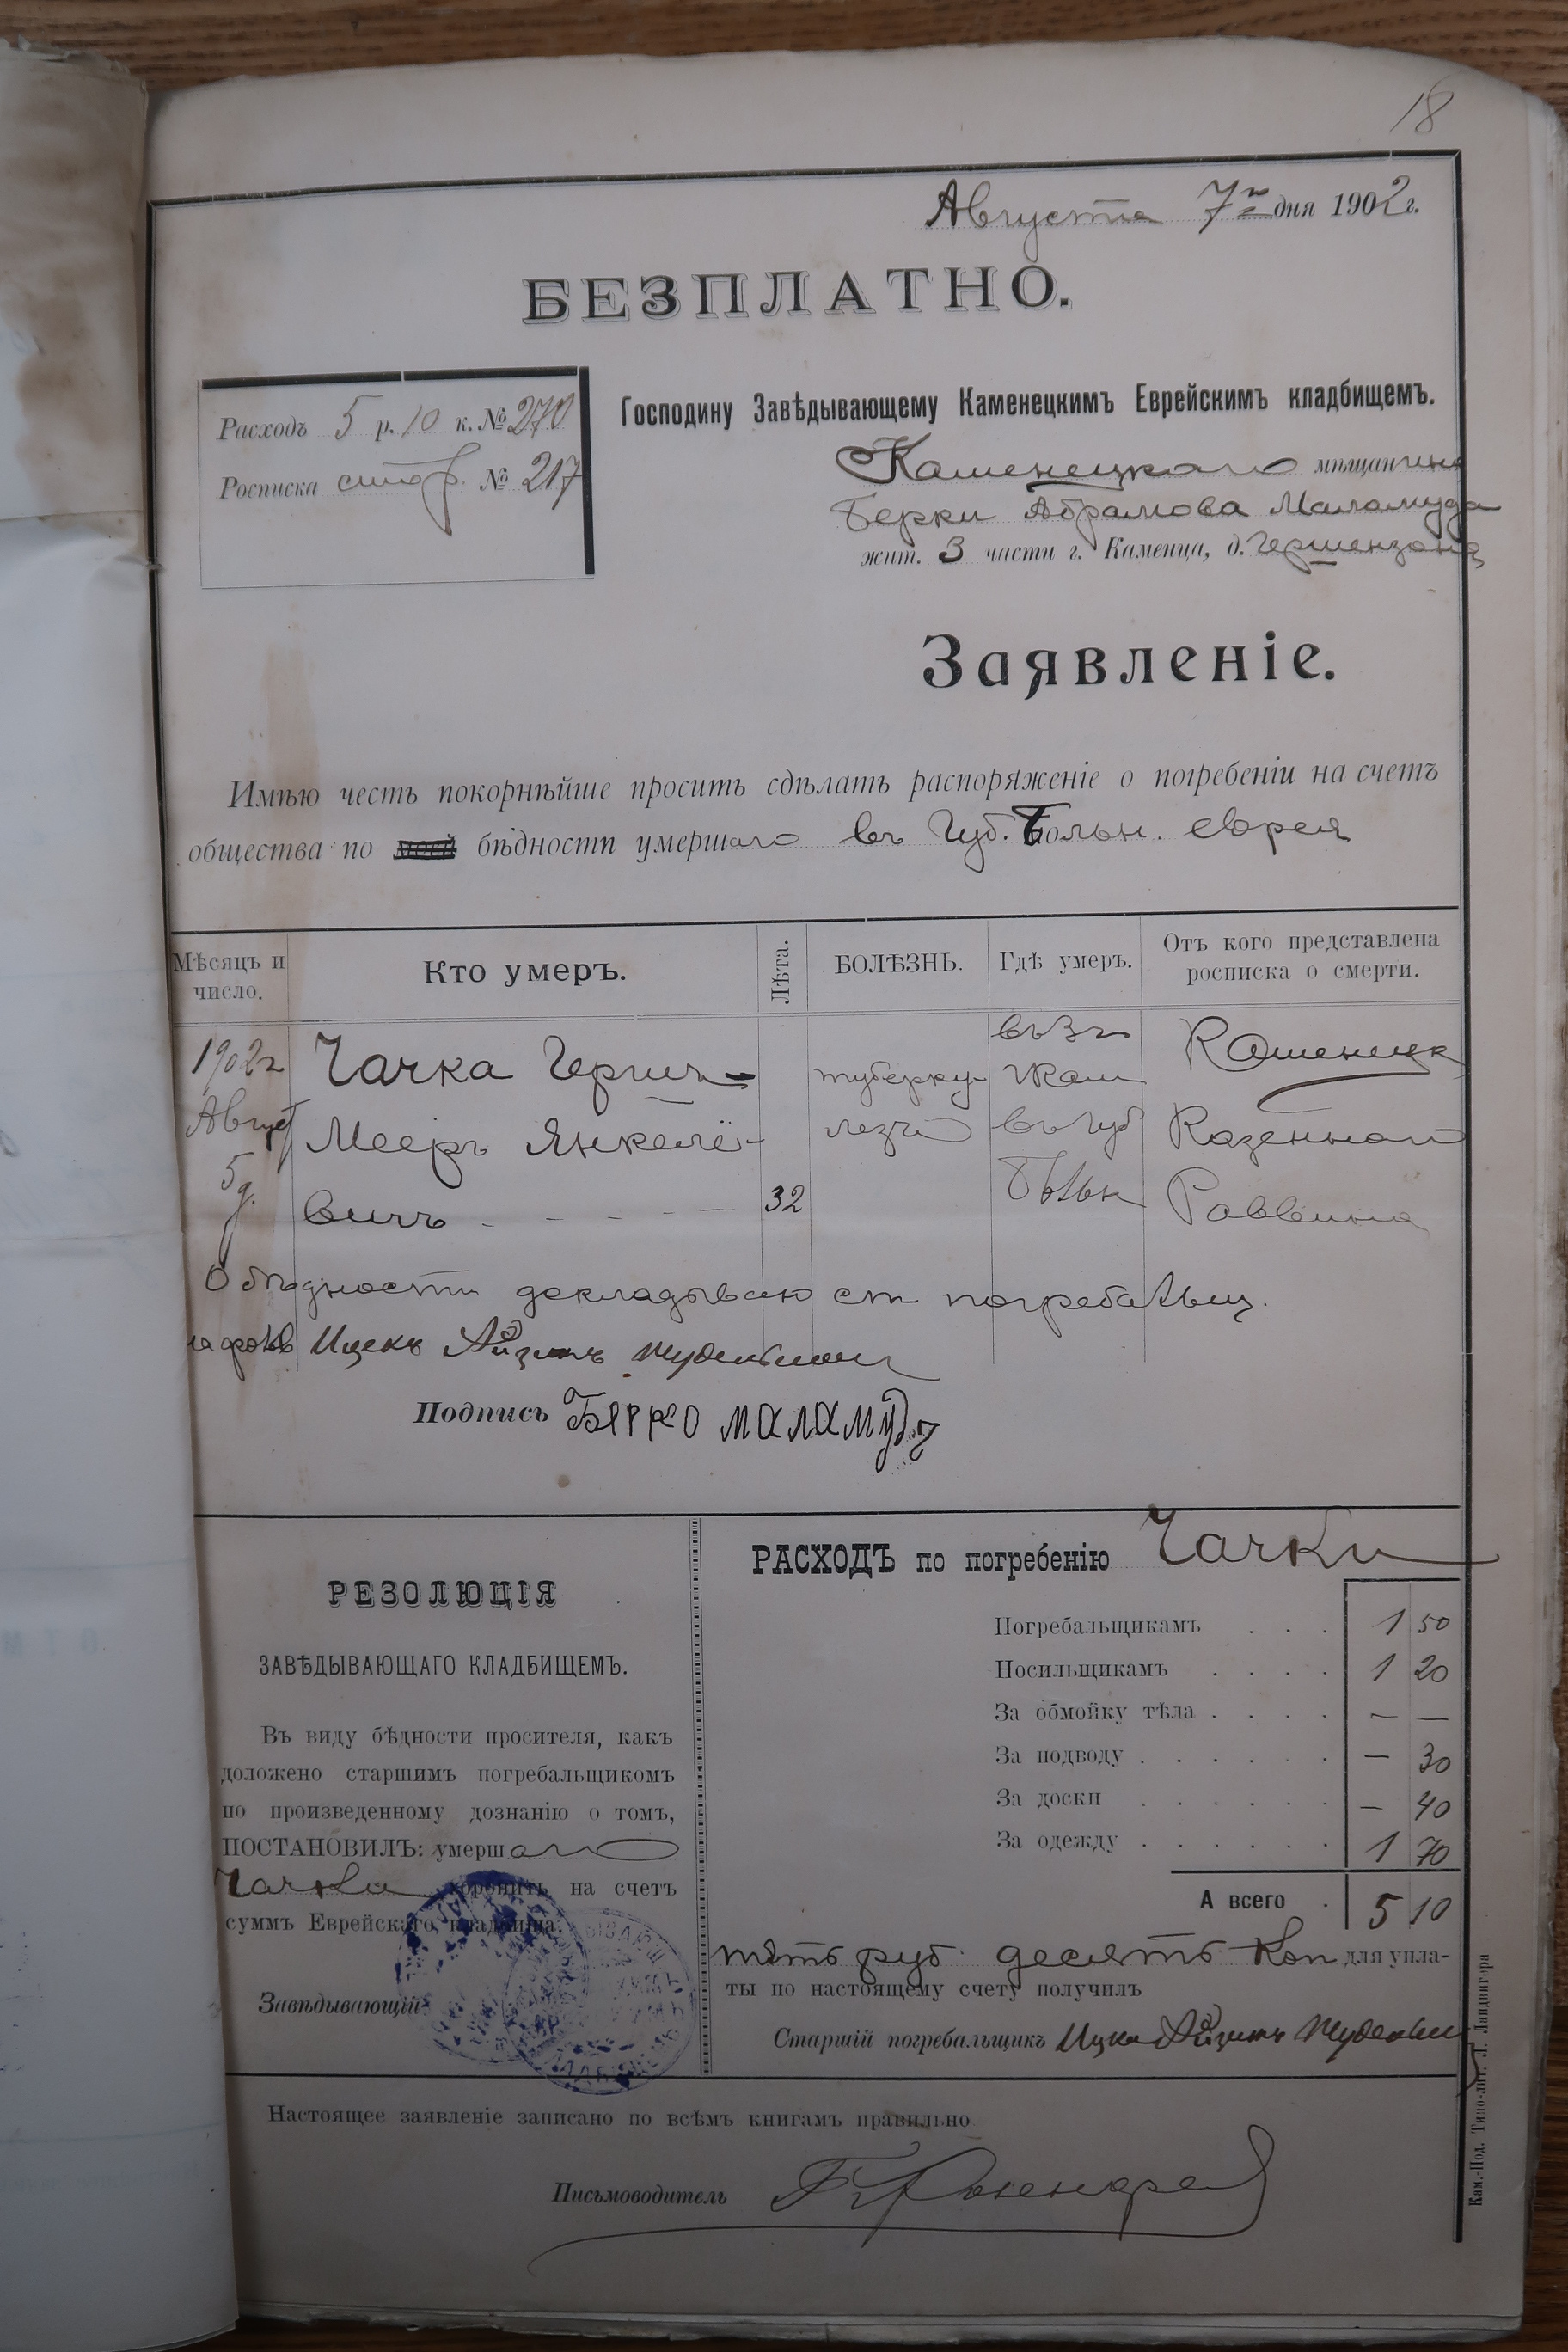 18
Августа 7го дня 1902 г.
БЕЗПЛАТНО.
Расходъ 5 р. 10 к. № 270
Росписка № 217
Господину Завѣдывающему Каменецкимъ Еврейскимъ кладбищемъ.
Каменецкаго мѣщанина
Берки Абрамова Маламуда
жит. 3 части г. Каменца, д. Гершензона
Заявленіе.
Имѣю честь покорнѣйше просить сдѣлать распоряженіе о погребеніи на счетъ
общества по бѣдности умершаго въ Губ. Больн. еврея
Мѣсяцъ и число.
Кто умеръ.
Лѣта.
БОЛѢЗНЬ.
Гдѣ умеръ.
Отъ кого представлена росписка о смерти.
1902 г. Август 5 д.
Чачка Гершъ-
Мееръ Янкеле-
вичъ - - - - -
32
туберку-
лезъ
въ Губ
Каменецк
Казенной
Раввина
О бѣдности докладываю ст погребальщ.
Ицекъ Айзикъ
Подпись Берко маламудъ
РЕЗОЛЮЦІЯ
ЗАВѢДЫВАЮЩАГО КЛАДБИЩЕМЪ.
Въ виду бѣдности просителя, какъ
доложено старшимъ погребальщикомъ
по произведенному дознанію о томъ,
ПОСТАНОВИЛЪ: умершаго
Чачки хоронить на счетъ
суммъ Еврейскаго кладбища.
Завѣдывающій
РАСХОДЪ по погребенію Чачки
Погребальщикамъ . . . 1 50
Носильщикамъ . . . . 1 20
За обмойку тѣла . . . . — —
За подводу . . . . . . — 30
За доски . . . . . . — 40
За одежду . . . . . . 1 70
А всего . 5 10
пять руб. десять коп для упла-
ты по настоящему счету получилъ
Старшій погребальщикъ Ицко Айзикъ
Настоящее заявленіе записано по всѣмъ книгамъ правильно
Письмоводитель
Кам.-Под. Типо-лит. Л. Ландвигера